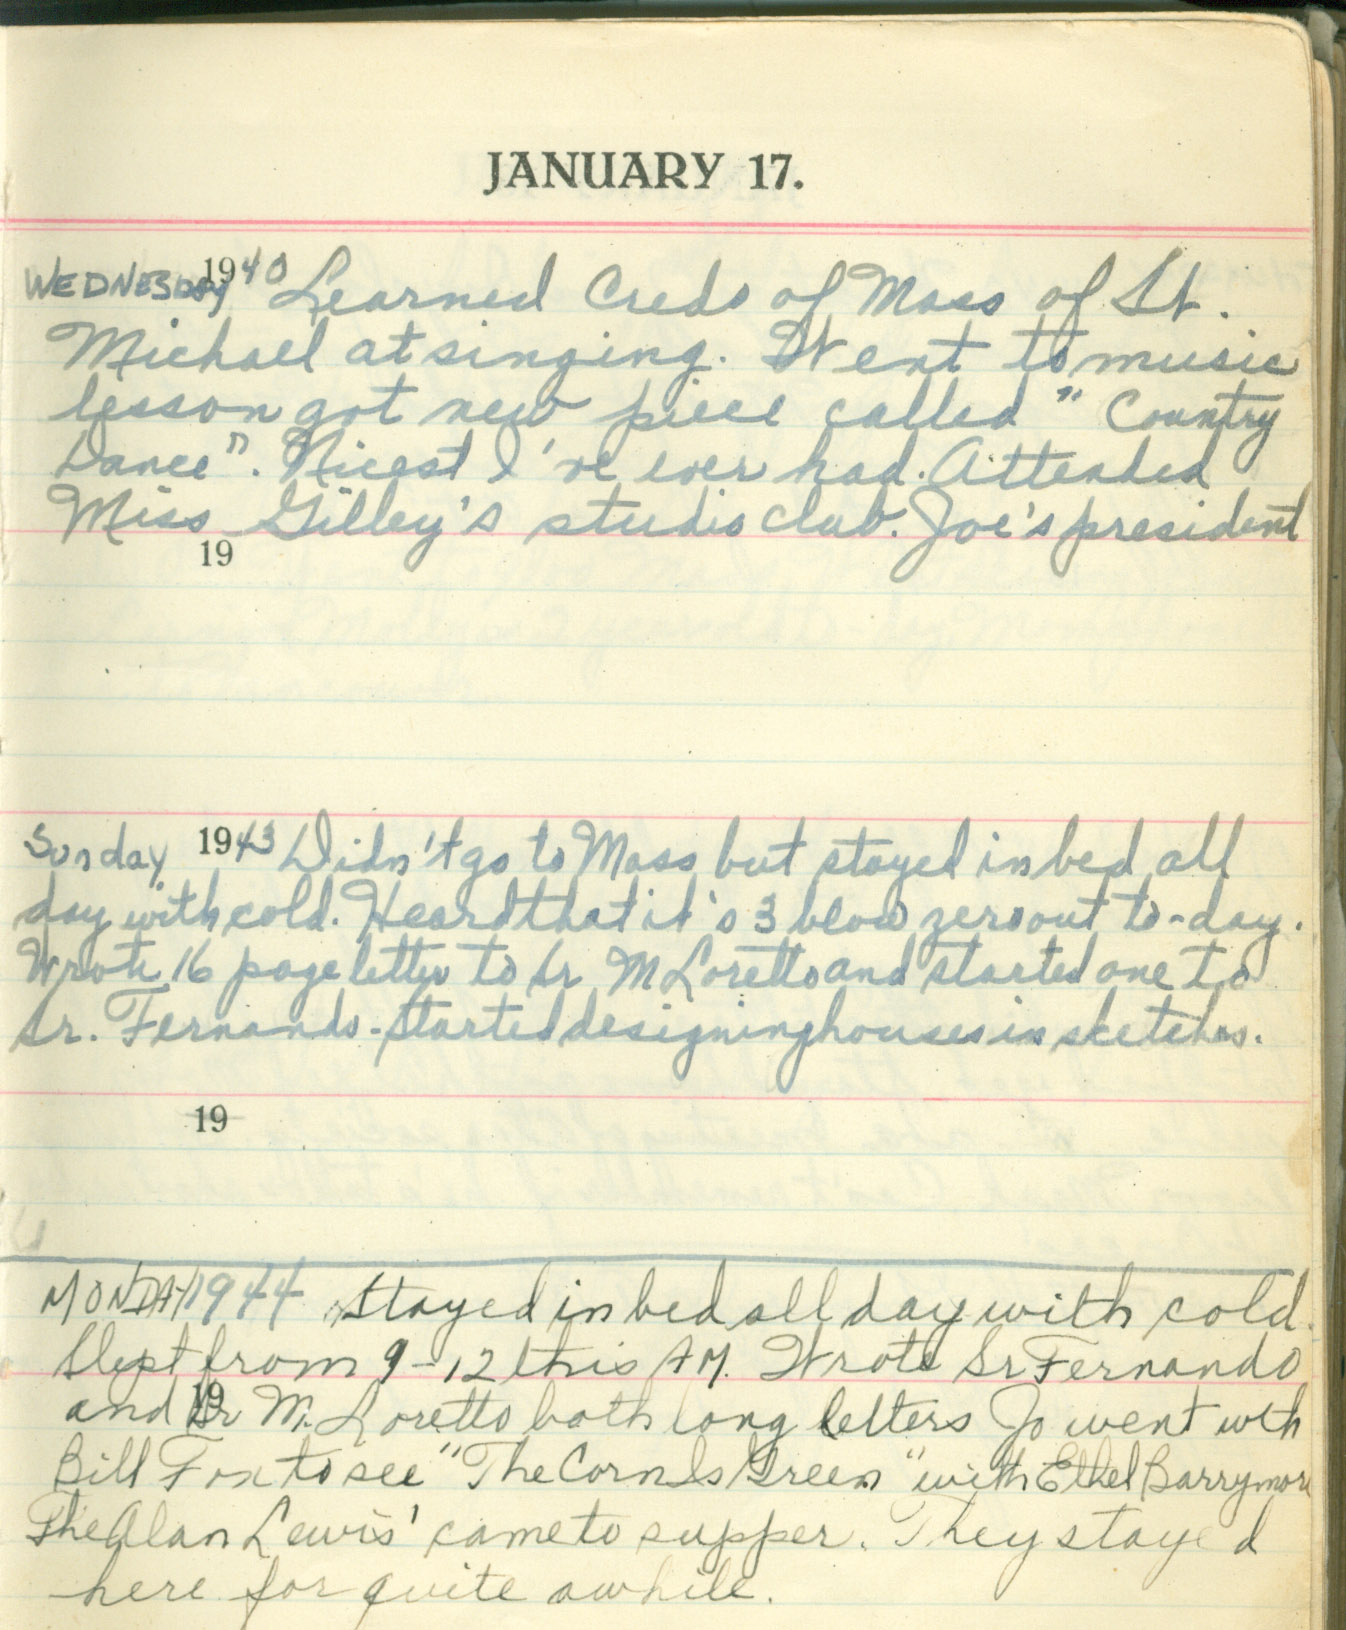 JANUARY 17.
WEDNESDAY 1940 Learned Credo of Mass of St.
Michael at singing. Went to music
lesson got new piece called "Country
Dance". Nicest I've ever had. Attended
Miss Gilley's studio club. Joe's president
19
Sunday 1943 Didn't go to Mass but stayed in bed all
day with cold. Heard that it's 3 blow zero out to-day.
Wrote 16 page letter to Sr M Loretto and started one to
Sr. Fernando. Started designing houses in sketches.
19
MONDAY 1944 Stayed in bed all day with cold.
Slept from 9-12 this A.M. Wrote Sr Fernando
19
and Sr M. Loretto both long letters Jo went wth
Bill Fox to see "The Corn Is Green" with Ethel Barrymore
The Alan Lewis' came to supper. They stayed
here for quite awhile.